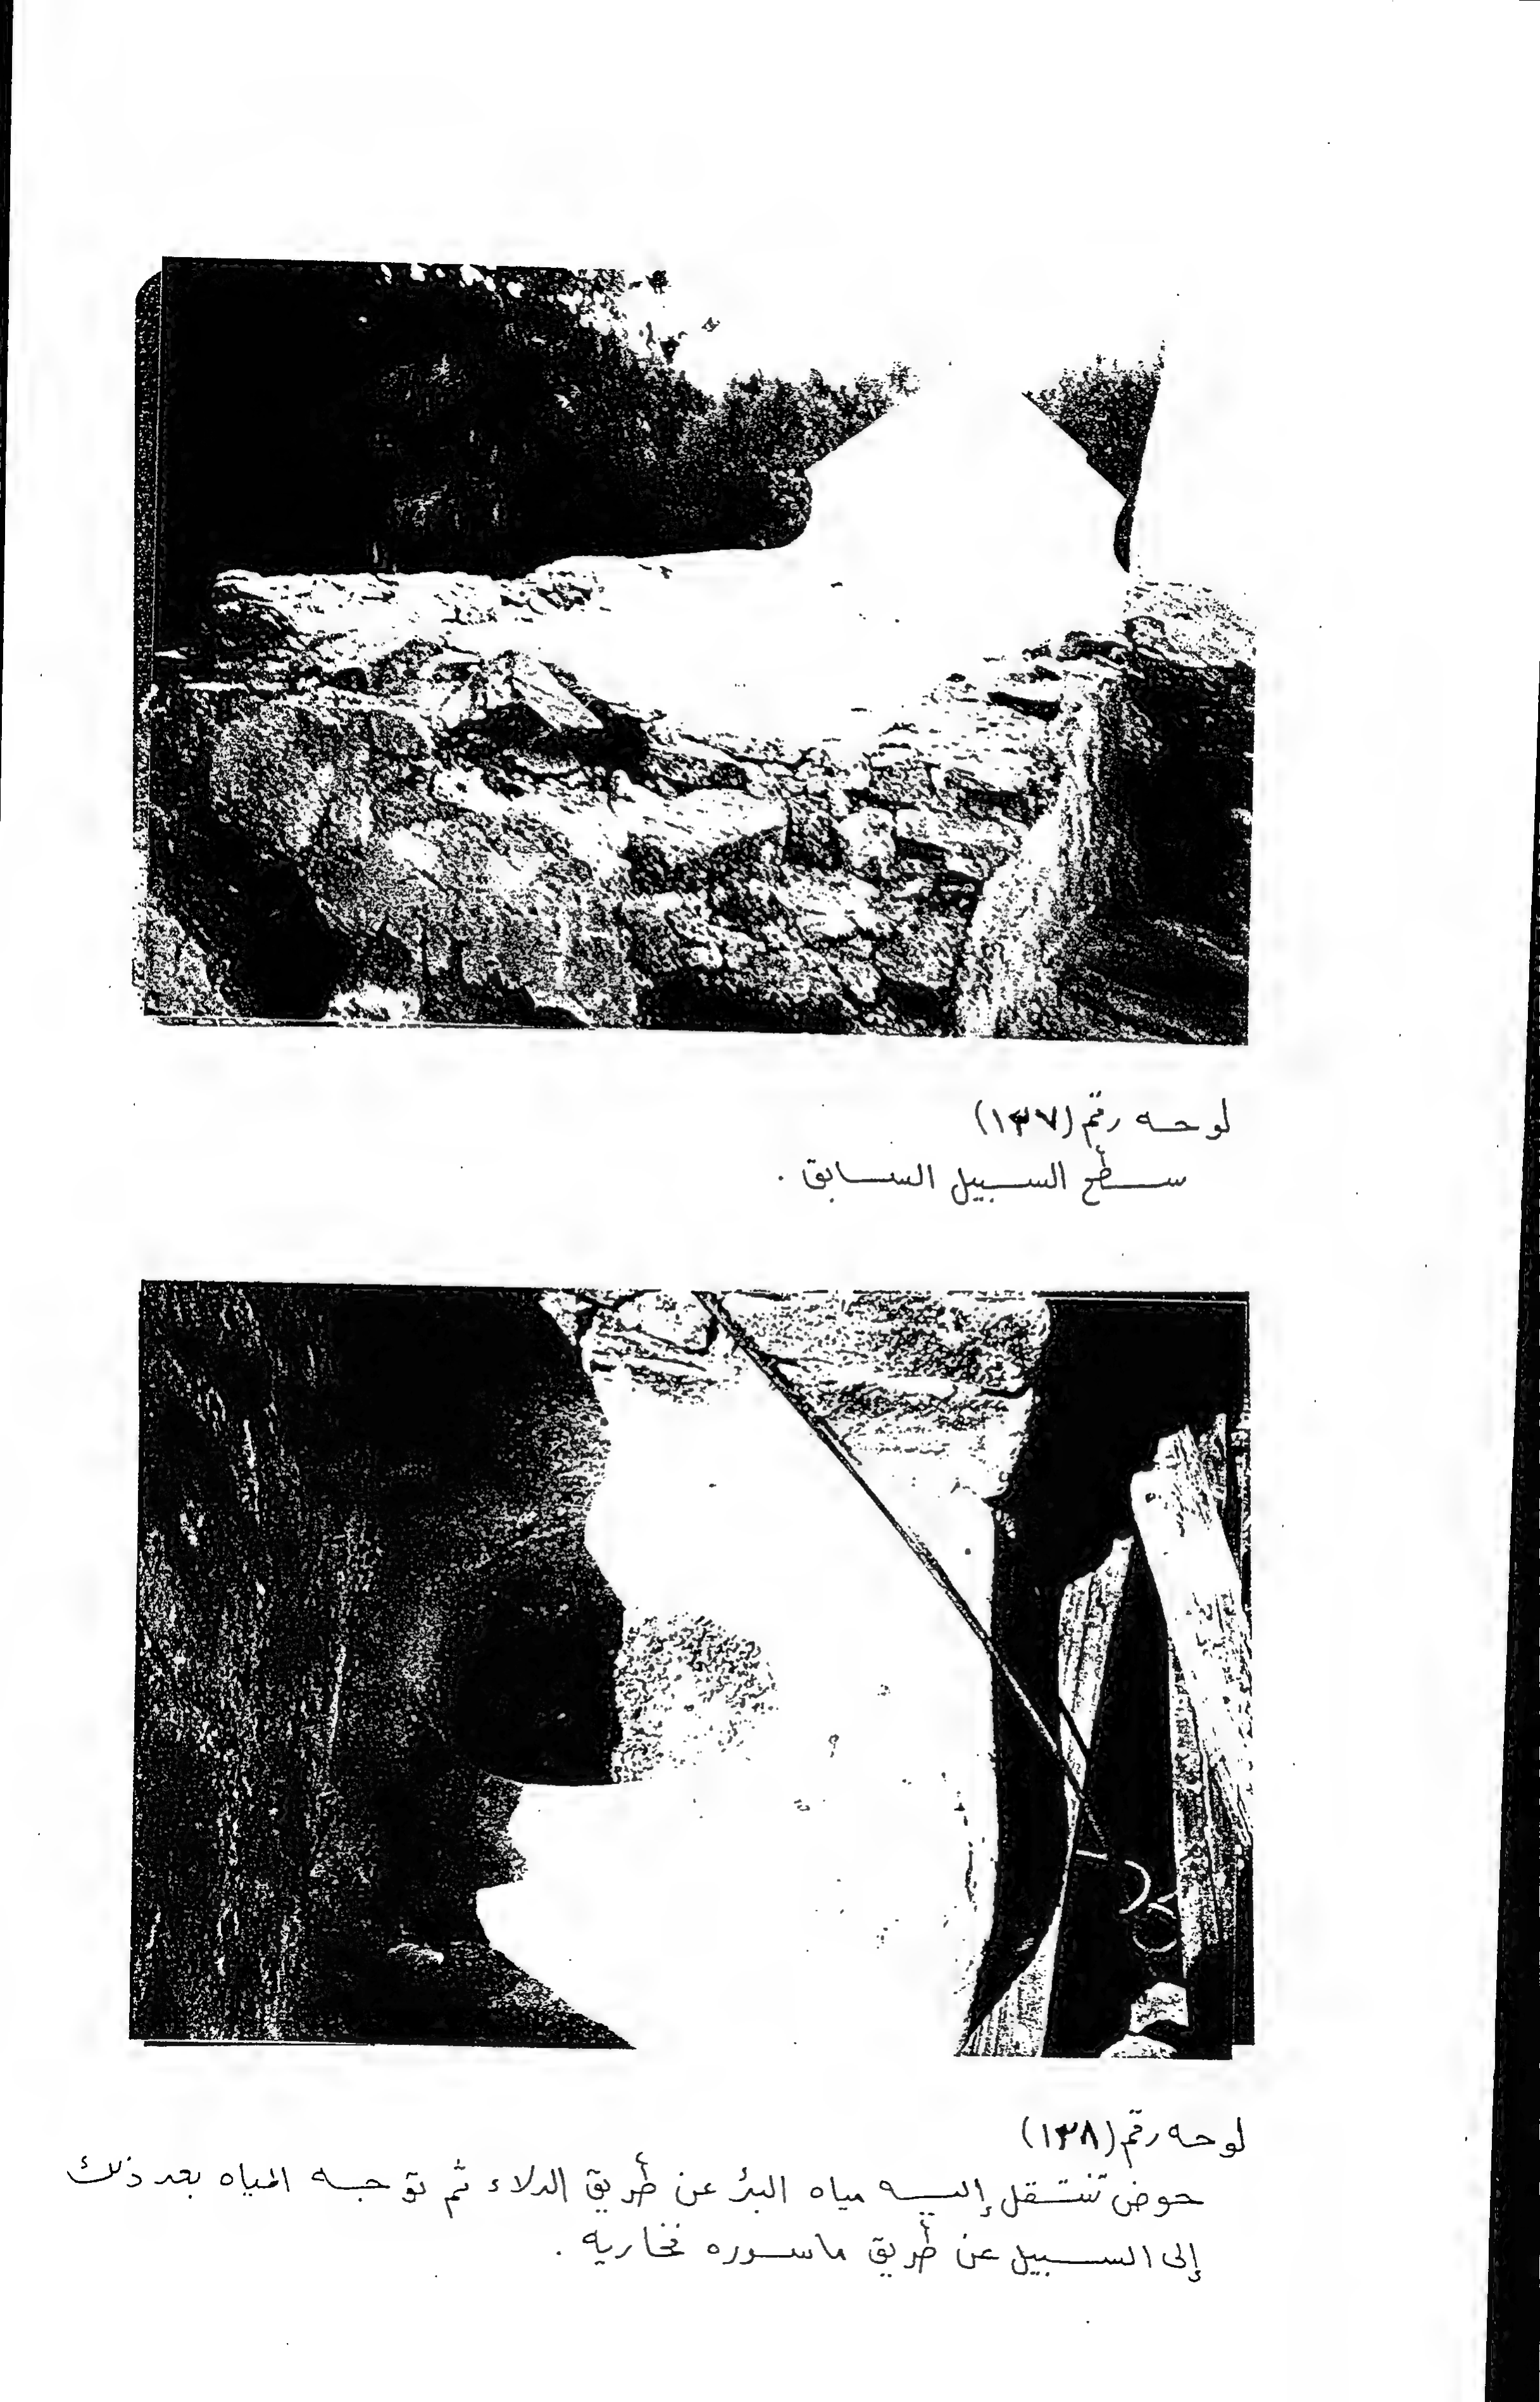 لوحه رقم (١٣٧)
سطح السبيل السابق .
لوحه رقم (١٣٨)
حوض تنتقل إليه مياه البئر عن طريق الدلاء ثم توجه المياه بعد ذلك
إلى السبيل عن طريق ماسوره فخاريه .